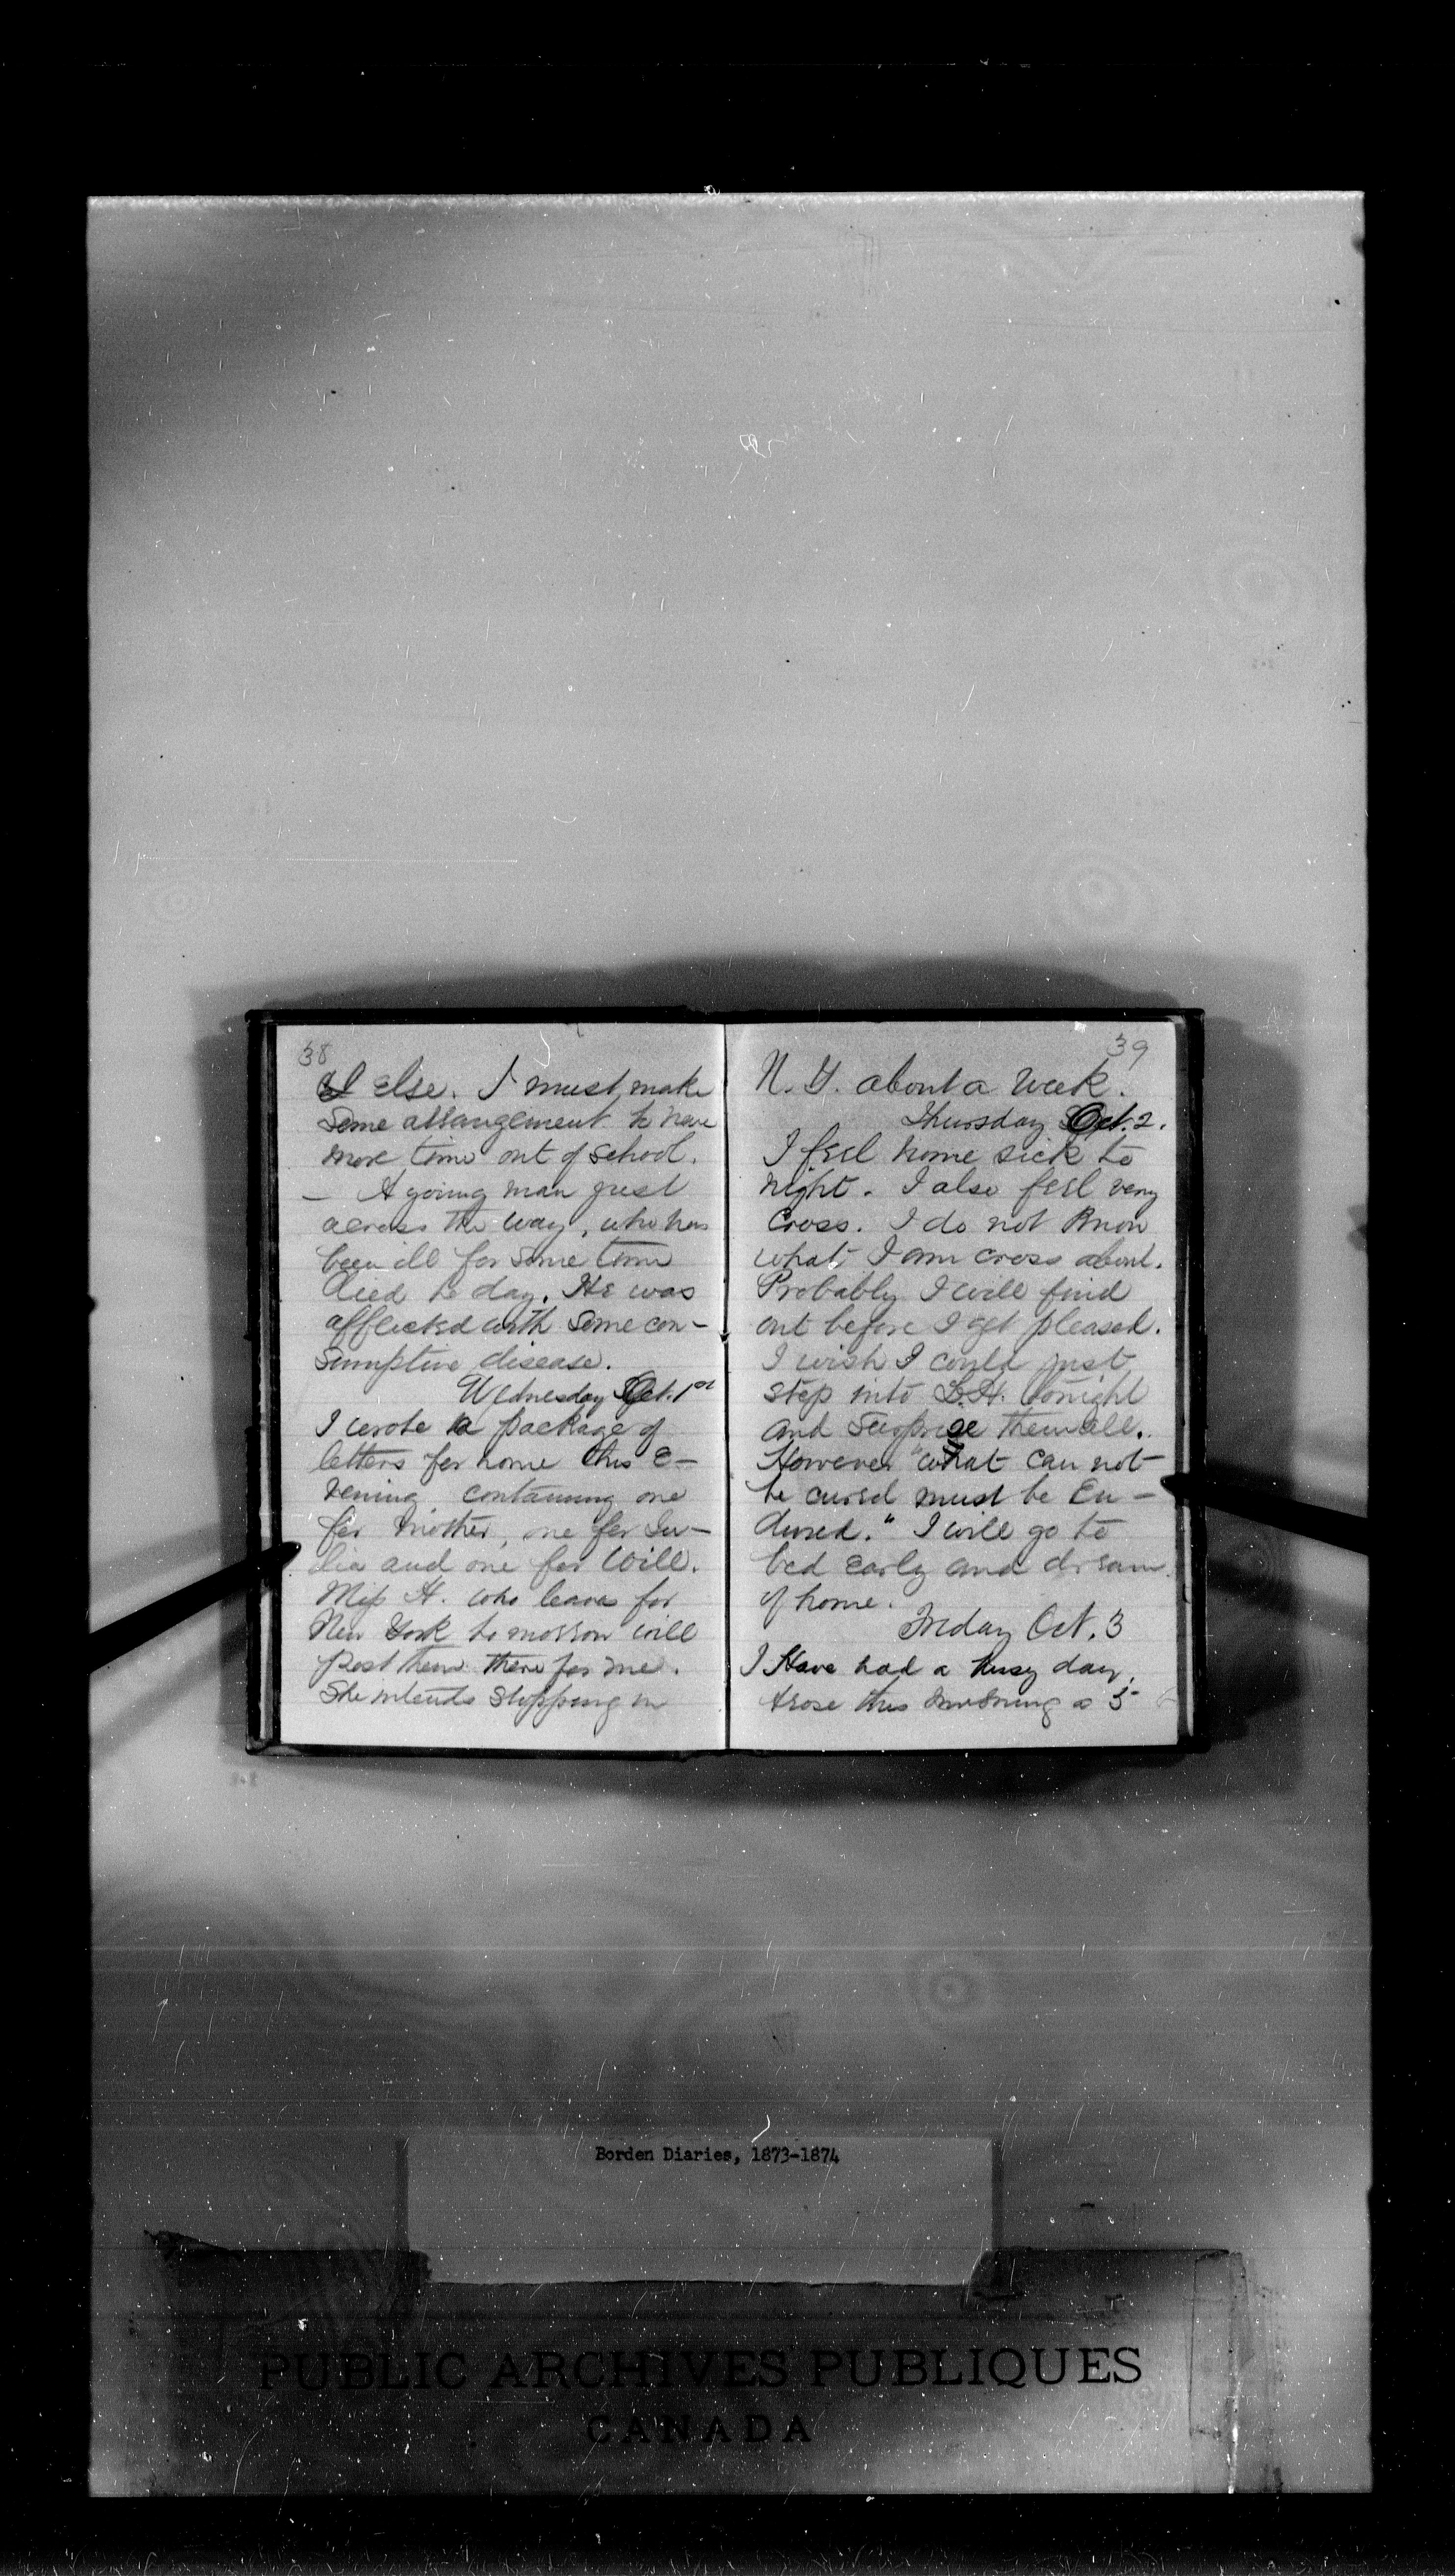 38
else. I must make
some arrangement to have
more time out of school.
– A young man just
across the way, who has
been ill for some time
died to day. He was
afflicted with some con-
sumptive disease.
Wednesday Oct. 1st
I wrote a package of
letters for home this e-
vening, containing one
for Mother, one for Ju-
lia and one for Will.
Miss H. who leaves for
New York to morrow will
post them there for me.
She intends stopping in
39
N. Y. about a week.
Thursday Oct. 2.
I feel home sick to
night. I also feel very
cross. I do not know
what I am cross about.
Probably I will find
out before I get pleased.
I wish I could just
step into G.H. tonight
and surprise them all.
However "what can not
be cured must be en-
dured." I will go to
bed early and dream
of home.
Friday Oct. 3
I Have had a busy day,
Arose this morning a 5
Borden Diaries, 1873-1874
PUBLIC ARCHIVES PUBLIQUES
CANADA